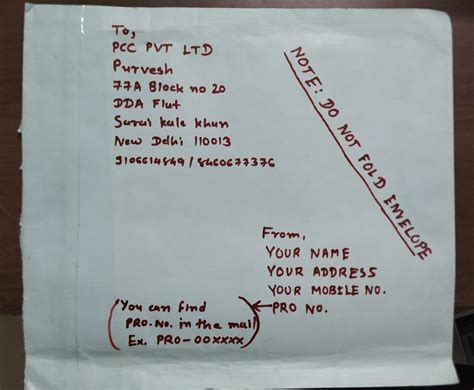 To,
PCC PVT LTD
Purvesh
77A Block no 20
DDA Flat
Sarai kale khan
New Delhi 110013
9106614849 / 8460677376
NOTE: DO NOT FOLD ENVELOPE
From,
YOUR NAME
YOUR ADDRESS
YOUR MOBILE NO.
PRO NO.
(You can find
PRO. No. in the mail
Ex. PRO-00XXXX)